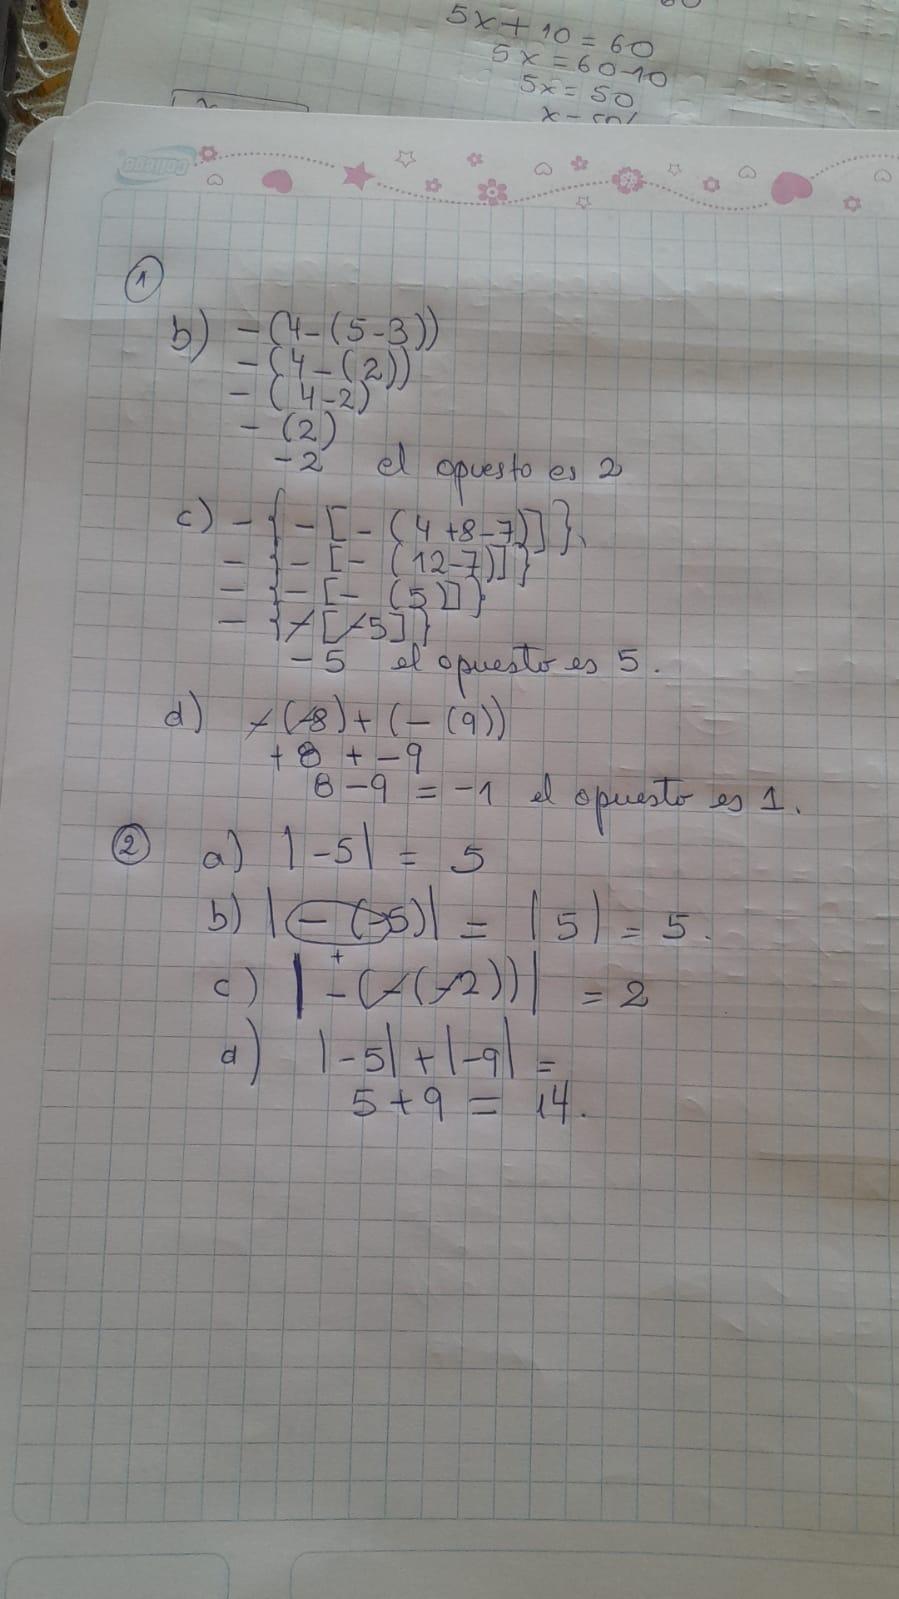 5x + 10 = 60
5x = 60-10
5x = 50
College
1
b) -(4-(5-3))
-(4-(2))
-(4-2)
-(2)
-2 el opuesto es 2
c) -{-[-(4+8-7)]}
-{-[-(12-7)]}
-{-[-(5)]}
-{-[-5]}
-5 el opuesto es 5.
d) -(-8)+(-(9))
+8 + -9
8-9 = -1 el opuesto es 1.
2 a) |-5| = 5
b) |-(-5)| = |5| = 5.
+
c) |-(-(-2))| = 2
d) |-5|+|-9| =
5+9 = 14.